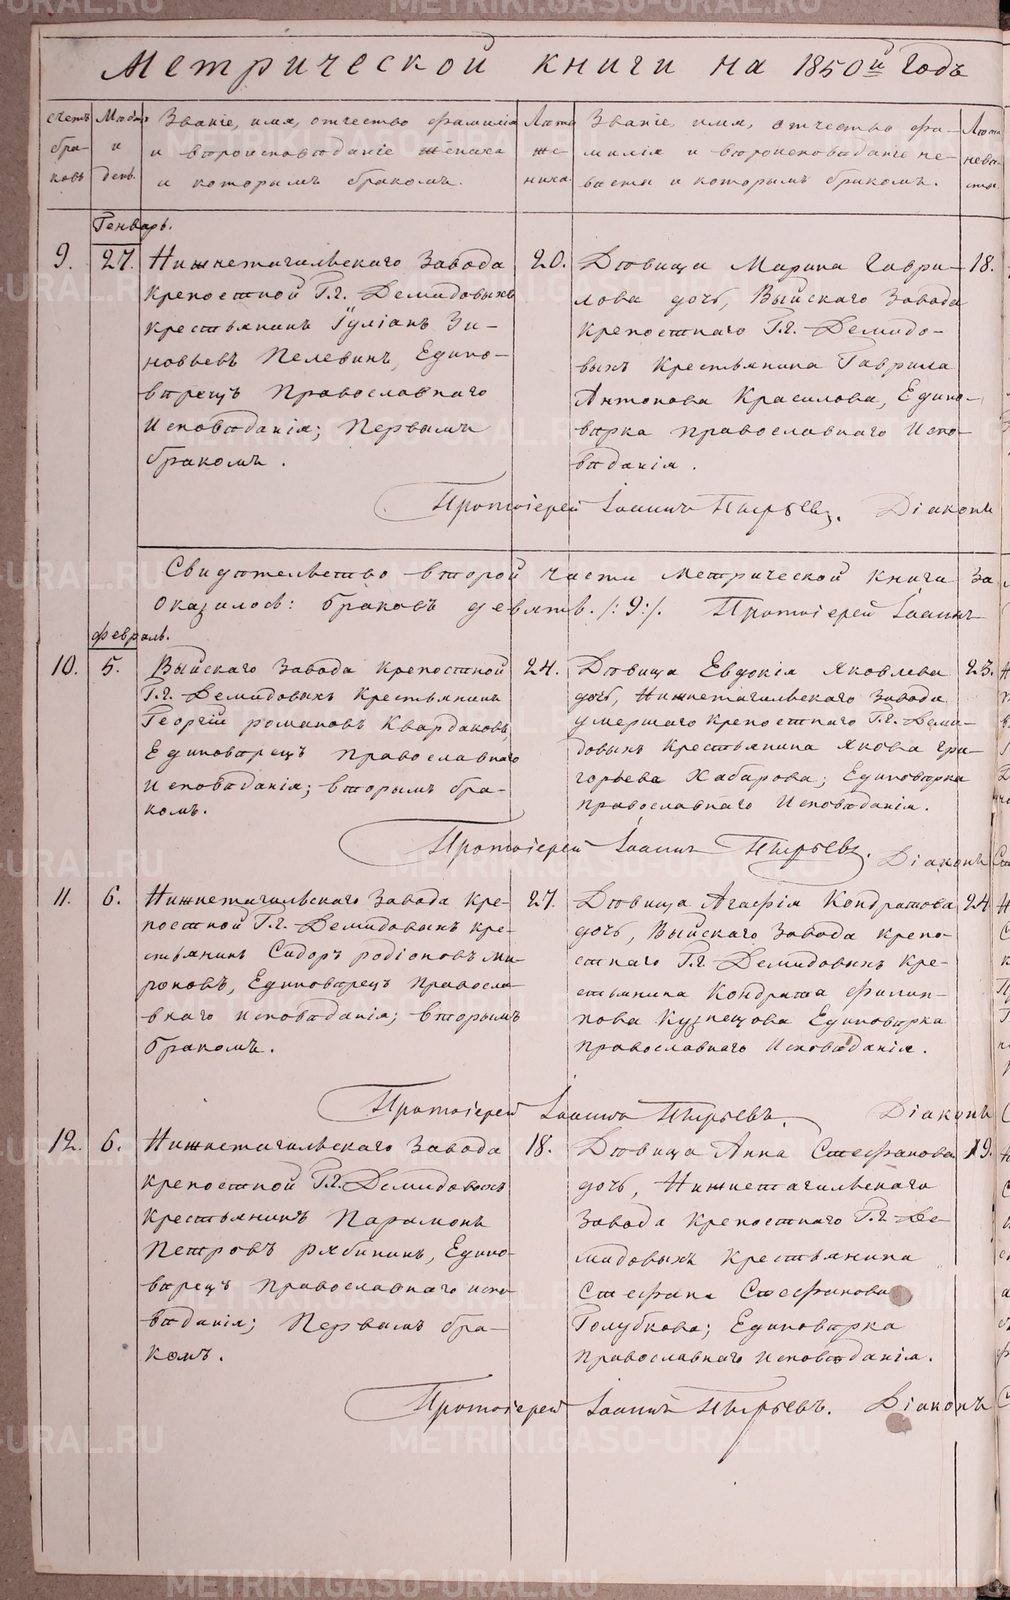 Метрической книги на 1850й Годъ
счетъ браковъ
Мѣсяцъ и день.
Званіе, имя, отчество фамилія
и вѣроисповѣданіе жениха
и которымъ бракомъ.
Лѣта жениха
Званіе, имя, отчество фа-
милія и вѣроисповѣданіе не-
вѣсты и которымъ бракомъ.
Лѣта невѣсты
Генварь.
9.
27.
Нижнетагильскаго Завода
Крепостной Г.г. Демидовыхъ
Крестьянинъ Іуліанъ Зи-
новьевъ Пелевинъ, Едино-
вѣрецъ Православнаго
Исповѣданія; Первымъ
бракомъ.
20.
Дѣвица Марина Гаври-
лова дочь, Выйскаго Завода
Крепостнаго Г.г. Демидо-
выхъ Крестьянина Гаврила
Антонова Красилова, Едино-
вѣрка православнаго Испо-
вѣданія.
18.
Протоіерей Іоаннъ Пырьевъ. Діаконъ
Свидѣтельство второй части Метрической книги За
Оказалось: браковъ девять /:9:/. Протоіерей Іоаннъ
февраль.
10.
5.
Выйскаго Завода Крепостной
Г.г. Демидовыхъ Крестьянинъ
Георгій романовъ Квардаковъ,
Единовѣрецъ Православнаго
Исповѣданія; вторымъ бра-
комъ.
24.
Дѣвица Евдокія Яковлева
дочь, Нижнетагильскаго Завода
умершаго Крепостнаго Г.г. Деми-
довыхъ Крестьянина Якова Гри-
горьева Хабарова; Единовѣрка
православнаго Исповѣданія.
23.
Протоіерей Іоаннъ Пырьевъ. Діаконъ
11.
6.
Нижнетагильскаго Завода Кре-
постной Г.г. Демидовыхъ кре-
стьянинъ Сидоръ родіоновъ Ми-
роновъ, Единовѣрецъ Правосла-
внаго исповѣданія; вторымъ
бракомъ.
27.
Дѣвица Агафія Кондратова
дочь, Выйскаго Завода крепо-
стнаго Г.г. Демидовыхъ Кре-
стьянина Кондрата филип-
пова Кузнецова Единовѣрка
православнаго Исповѣданія.
24
Протоіерей Іоаннъ Пырьевъ. Діаконъ
12.
6.
Нижнетагильскаго Завода
Крепостной Г.г. Демидовыхъ
Крестьянинъ Парамонъ
Петровъ рябининъ, Едино-
вѣрецъ православнаго испо-
вѣданія; Первымъ бра-
комъ.
18.
Дѣвица Анна Стефанова
дочь, Нижнетагильскаго
Завода Крепостнаго Г.г. Де-
мидовыхъ Крестьянина
Стефана Стефанова
Голубкова; Единовѣрка
православнаго исповѣданія.
19.
Протоіерей Іоаннъ Пырьевъ. Діаконъ
METRIKI.GASO-URAL.RU